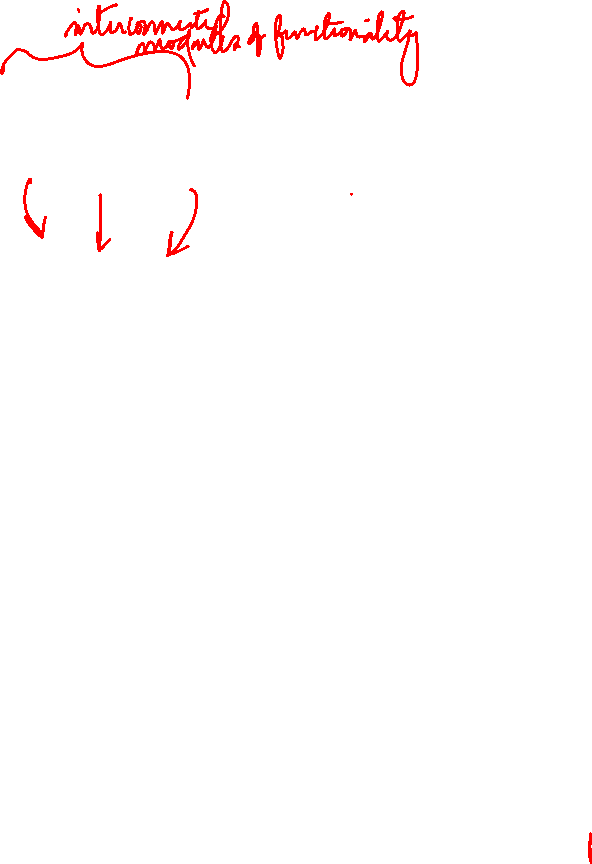 interconnected
modules of functionality